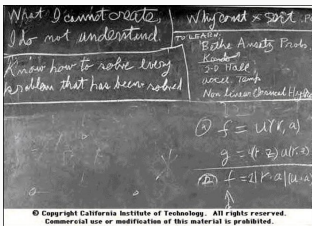 What I cannot create,
I do not understand.
Know how to solve every
problem that has been solved
Why const × sort
TO LEARN:
Bethe Ansatz Prob.
Kondo
2-D Hall
accel. Temp
Non linear Classical Hydro
f = u(r, a)
g =
u(r, z)
f = 2|r·a|
© Copyright California Institute of Technology. All rights reserved.
Commercial use or modification of this material is prohibited.